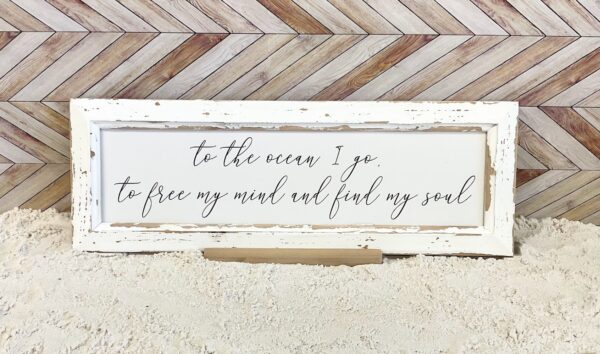 to the ocean I go,
to free my mind and find my soul